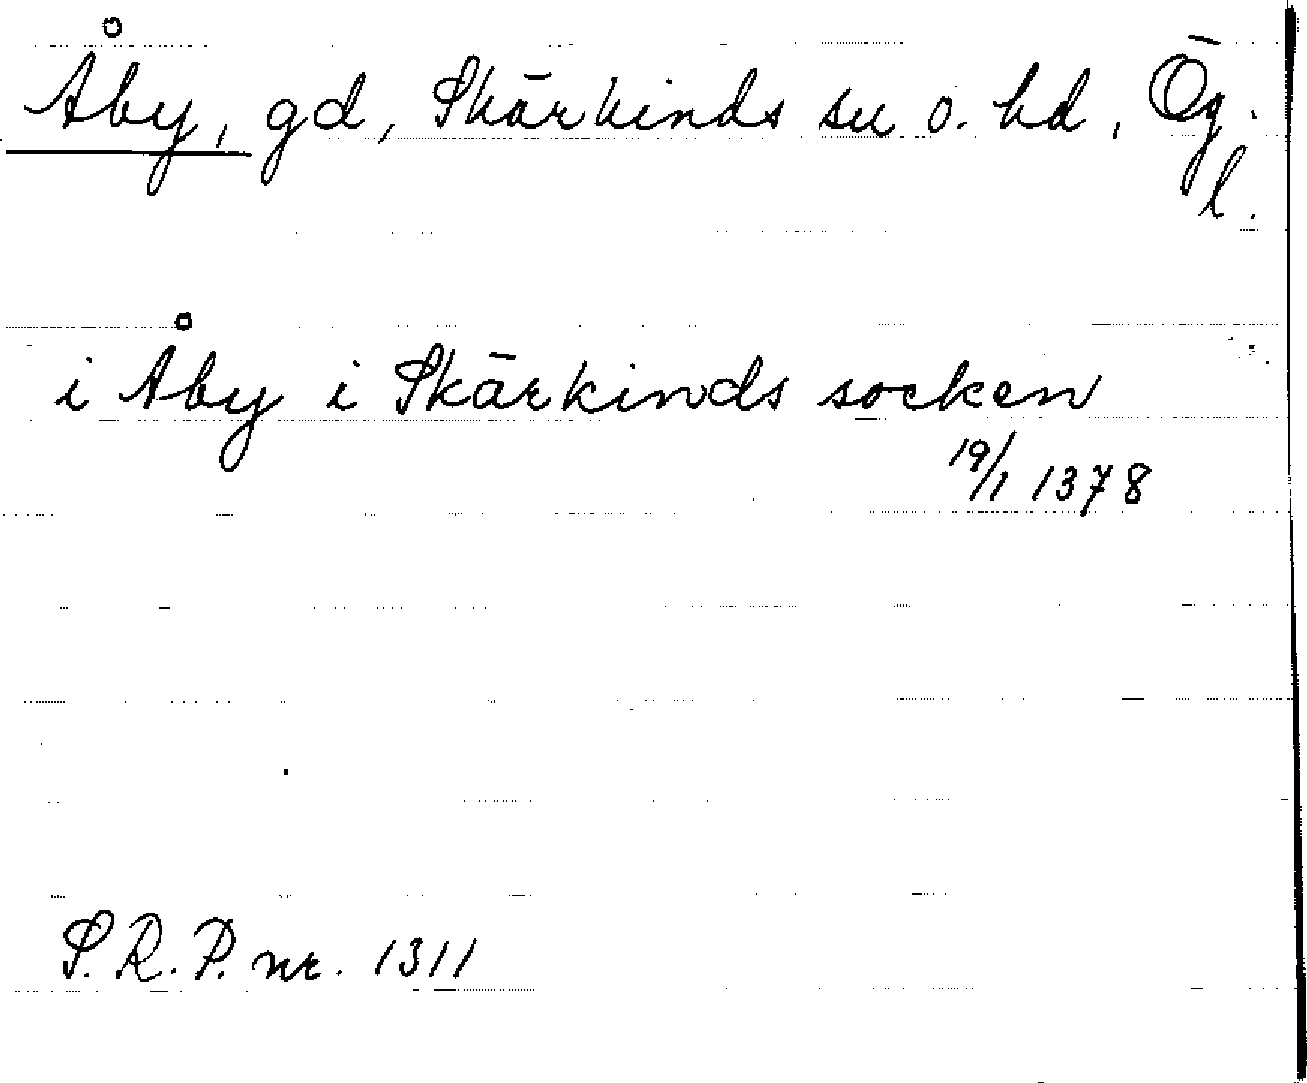 Åby, gd, Skärkinds sn o. hd, Ög.
l.
i Åby i Skärkinds socken
19/1 1378
S.R.P. nr. 1311